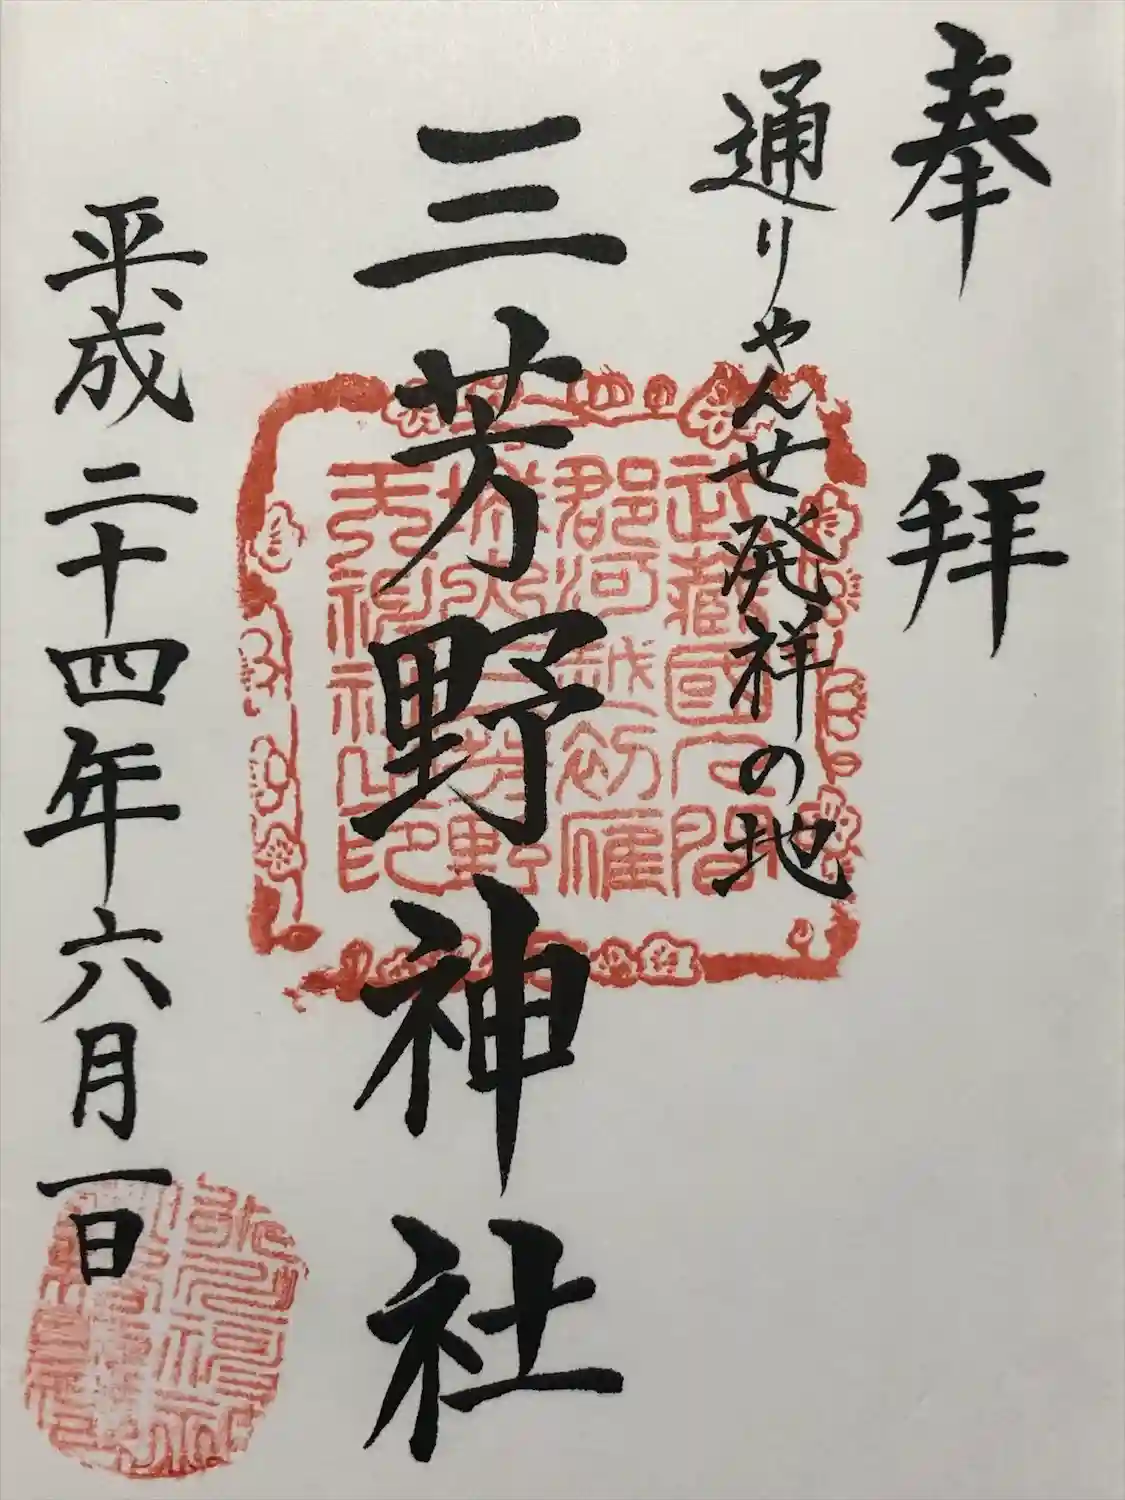 奉拝
通りやんせ発祥の地
三芳野神社
平成二十四年六月一日
武蔵國入間
郡河越初雁
城内三芳野
天神社之印